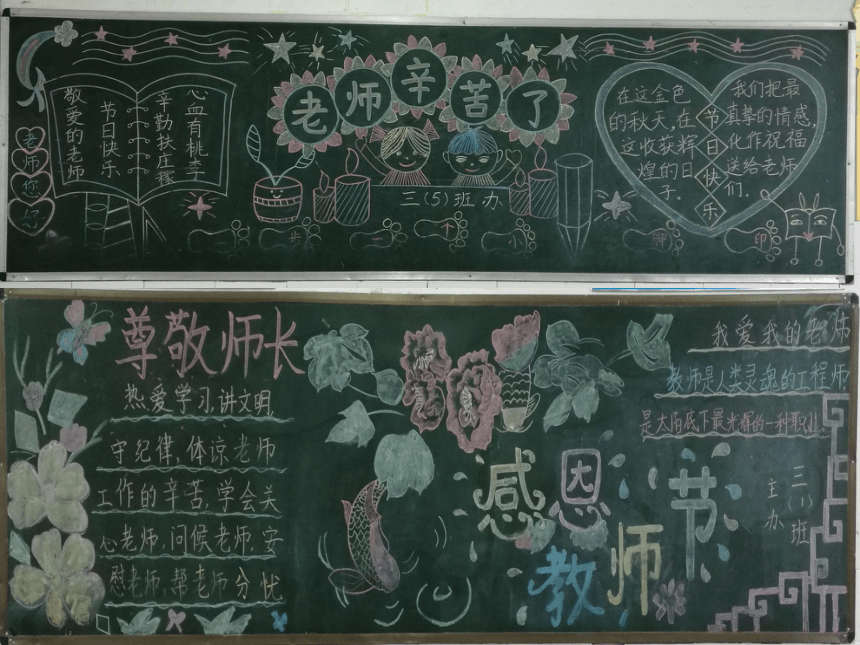 老师辛苦了
老师您好
敬爱的老师
节日快乐
辛勤扶庄稼
心血有桃李
三(5)班办
在这金色
的秋天,在
这收获辉
煌的日
子.
节日快乐
我们把最
真挚的情感,
化作祝福
送给老师
们.
步
个
小
脚
印
尊敬师长
热爱学习,讲文明,
守纪律,体谅老师
工作的辛苦,学会关
心老师,问候老师,安
慰老师,帮老师分忧
感恩
教师节
我爱我的老师
教师是人类灵魂的工程师
是太阳底下最光辉的一种职业
三(1)班
主办